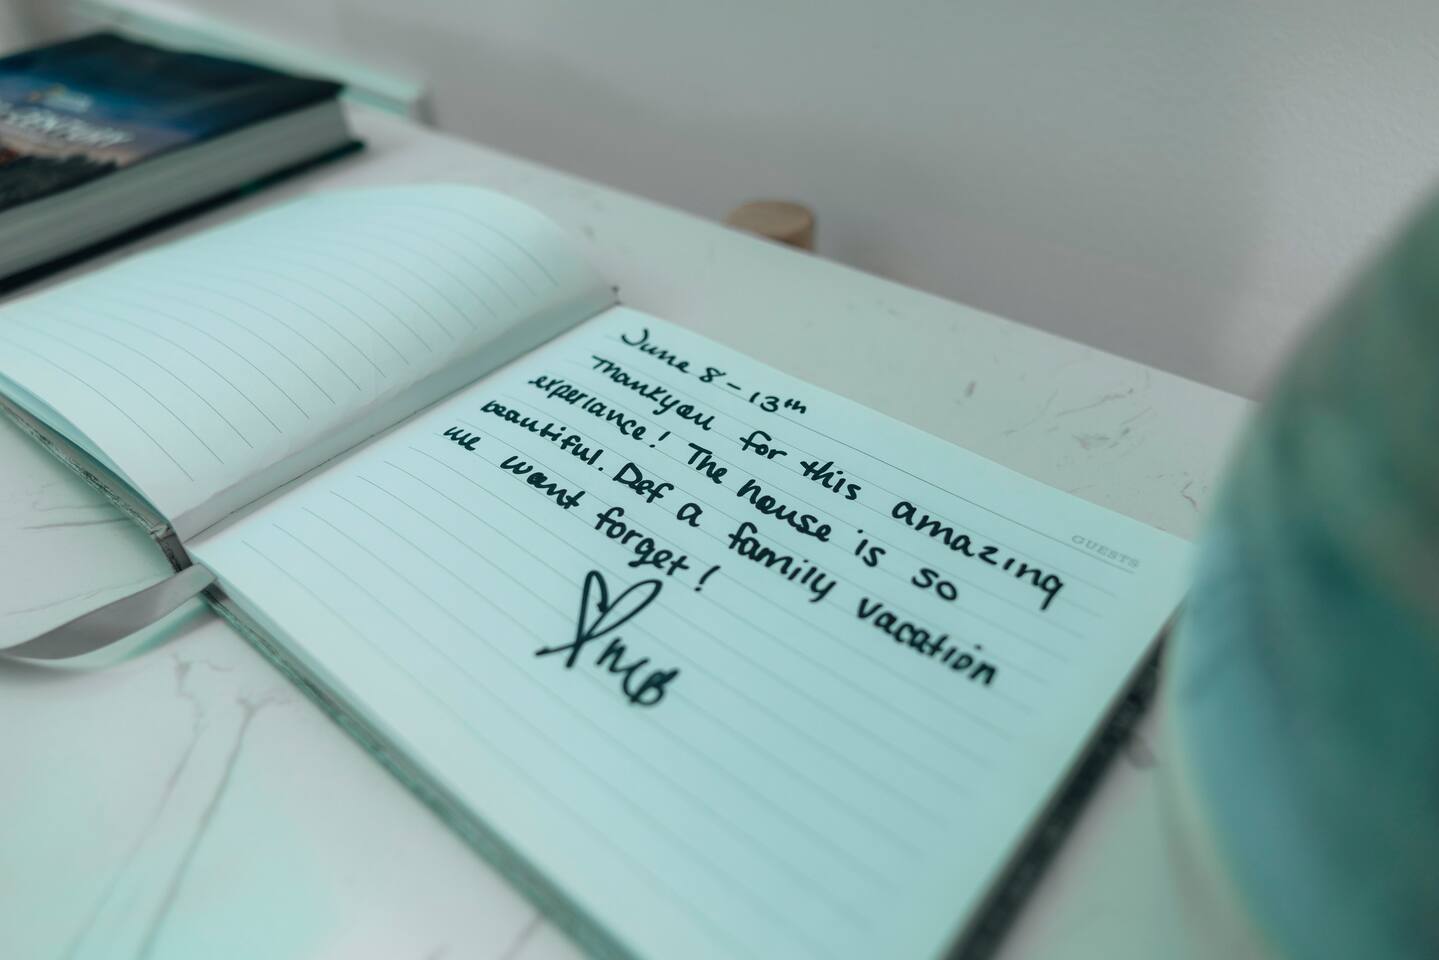 GUESTS
June 8-13th
Thankyou for this amazing
experiance! The house is so
beautiful. Def a family vacation
we wont forget!
MB